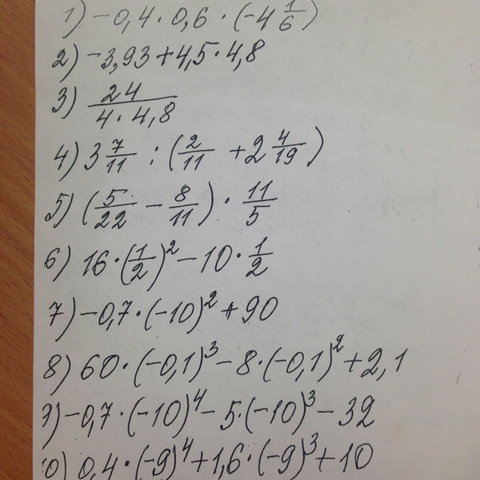 1) -0,4 · 0,6 · (-4 1/6)
2) -3,93 + 4,5 · 4,8
3) 24 / (4 · 4,8)
4) 3 7/11 : (2/11 + 2 4/19)
5) (5/22 - 8/11) · 11/5
6) 16 · (1/2)² - 10 · 1/2
7) -0,7 · (-10)² + 90
8) 60 · (-0,1)³ - 8 · (-0,1)² + 2,1
9) -0,7 · (-10)⁴ - 5 · (-10)³ - 32
10) 0,4 · (-9)⁴ + 1,6 · (-9)³ + 10